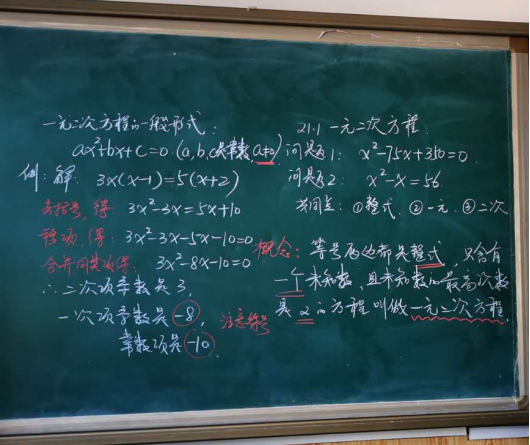 一元二次方程的一般形式:
ax²+bx+c=0 (a,b,c是常数,a≠0)
例: 解: 3x(x-1)=5(x+2)
去括号,得: 3x²-3x=5x+10
移项,得: 3x²-3x-5x-10=0
合并同类项得: 3x²-8x-10=0
∴二次项系数是3,
一次项系数是-8, 注意符号
常数项是-10.
21.1 一元二次方程
问题1: x²-75x+350=0
问题2: x²-x=56
共同点: ①整式 ②一元 ③二次
概念: 等号两边都是整式,只含有
一个未知数,且未知数的最高次数
是2的方程叫做一元二次方程.